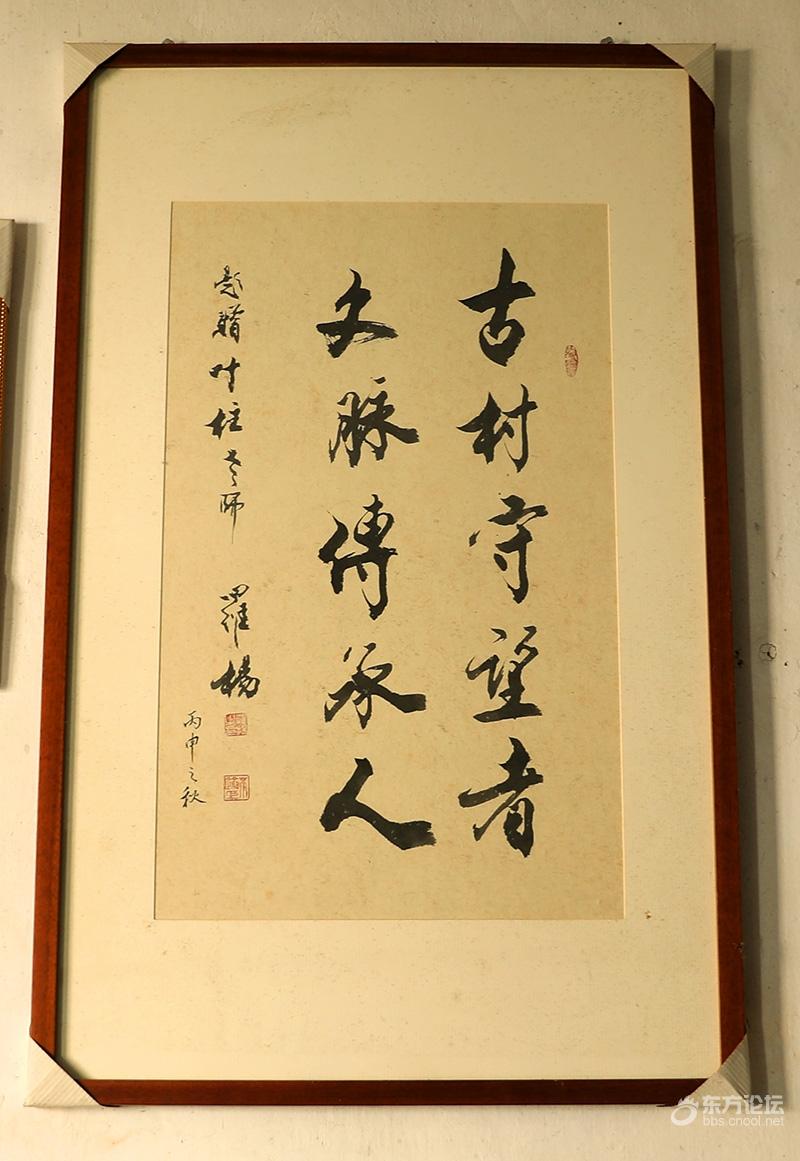 古村守望者
文脉傳承人
题赠叶柱老师
羅楊
丙申之秋
东方论坛
bbs.cnool.net